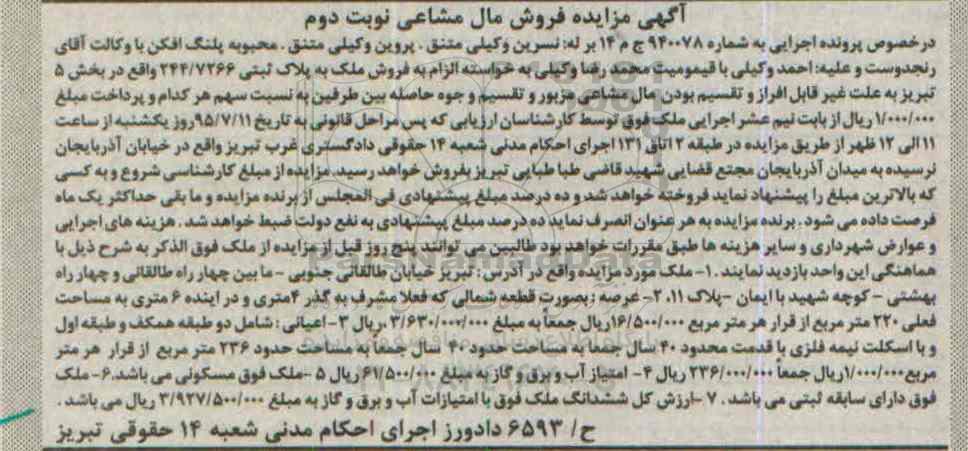 آگهی مزایده فروش مال مشاعی نوبت دوم
درخصوص پرونده اجرایی به شماره ۹۴۰۰۷۸ ج م ۱۴ بر له: نسرین وکیلی متنق . پروین وکیلی متنق . محبوبه پلنگ افکن با وکالت آقای
رنجدوست و علیه: احمد وکیلی با قیمومیت محمد رضا وکیلی به خواسته الزام به فروش ملک به پلاک ثبتی ۲۴۴/۷۲۶۶ واقع در بخش ۵
تبریز به علت غیر قابل افراز و تقسیم بودن مال مشاعی مزبور و تقسیم و جوه حاصله بین طرفین به نسبت سهم هر کدام و پرداخت مبلغ
۱/۰۰۰/۰۰۰ ریال از بابت نیم عشر اجرایی ملک فوق توسط کارشناسان ارزیابی که پس مراحل قانونی به تاریخ ۹۵/۷/۱۱روز یکشنبه از ساعت
۱۱ الی ۱۲ ظهر از طریق مزایده در طبقه ۲ اتاق ۱۳۱ اجرای احکام مدنی شعبه ۱۴ حقوقی دادگستری غرب تبریز واقع در خیابان آذربایجان
نرسیده به میدان آذربایجان مجتع قضایی شهید قاضی طبا طبایی تبریز بفروش خواهد رسید. مزایده از مبلغ کارشناسی شروع و به کسی
که بالاترین مبلغ را پیشنهاد نماید فروخته خواهد شد و ده درصد مبلغ پیشنهادی فی المجلس از برنده مزایده و ما بقی حداکثر یک ماه
فرصت داده می شود . برنده مزایده به هر عنوان انصرف نماید ده درصد مبلغ پیشنهادی به نفع دولت ضبط خواهد شد . هزینه های اجرایی
و عوارض شهرداری و سایر هزینه ها طبق مقررات خواهد بود طالبین می توانند پنج روز قبل از مزایده از ملک فوق الذکر به شرح ذیل با
هماهنگی این واحد بازدید نمایند . ۱- ملک مورد مزایده واقع در آدرس : تبریز خیابان طالقانی جنوبی - ما بین چهار راه طالقانی و چهار راه
بهشتی - کوچه شهید با ایمان -پلاک ۱۱. ۲- عرصه : بصورت قطعه شمالی که فعلا مشرف به گذر ۴متری و در اینده ۶ متری به مساحت
فعلی ۲۲۰ متر مربع از قرار هر متر مربع ۱۶/۵۰۰/۰۰۰ریال جمعاً به مبلغ ۳/۶۳۰/۰۰۰/۰۰۰ .ریال ۳- اعیانی : شامل دو طبقه همکف و طبقه اول
و با اسکلت نیمه فلزی با قدمت محدود ۴۰ سال جمعا به مساحت حدود ۴۰ سال جمعا به مساحت حدود ۲۳۶ متر مربع از قرار هر متر
مربع۱/۰۰۰/۰۰۰ریال جمعاً ۲۳۶/۰۰۰/۰۰۰ ریال ۴- امتیاز آب و برق و گاز به مبلغ ۶۱/۵۰۰/۰۰۰ ریال ۵ -ملک فوق مسکونی می باشد.۶- ملک
فوق دارای سابقه ثبتی می باشد . ۷ -ارزش کل ششدانگ ملک فوق با امتیازات آب و برق و گاز به مبلغ ۳/۹۲۷/۵۰۰/۰۰۰ ریال می باشد .
ح/ ۶۵۹۳ دادورز اجرای احکام مدنی شعبه ۱۴ حقوقی تبریز